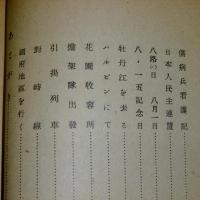 傷病兵看護記
日本人民主連盟
八路の日 八月一日
八・一五記念日
牡丹江を去る
ハルピンにて
花園收容所
擔架隊出發
引揚列車
對峙線
國府地區を行く
あとがき